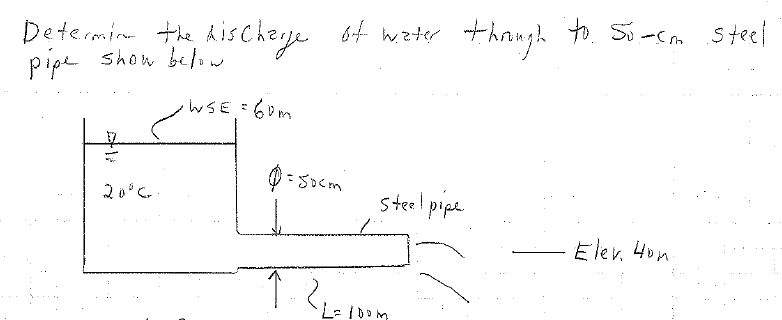 Determin the discharge of water through to 50-cm steel
pipe show below
WSE = 60m
20°C
Φ = 50cm
steel pipe
Elev. 40m
L= 100m